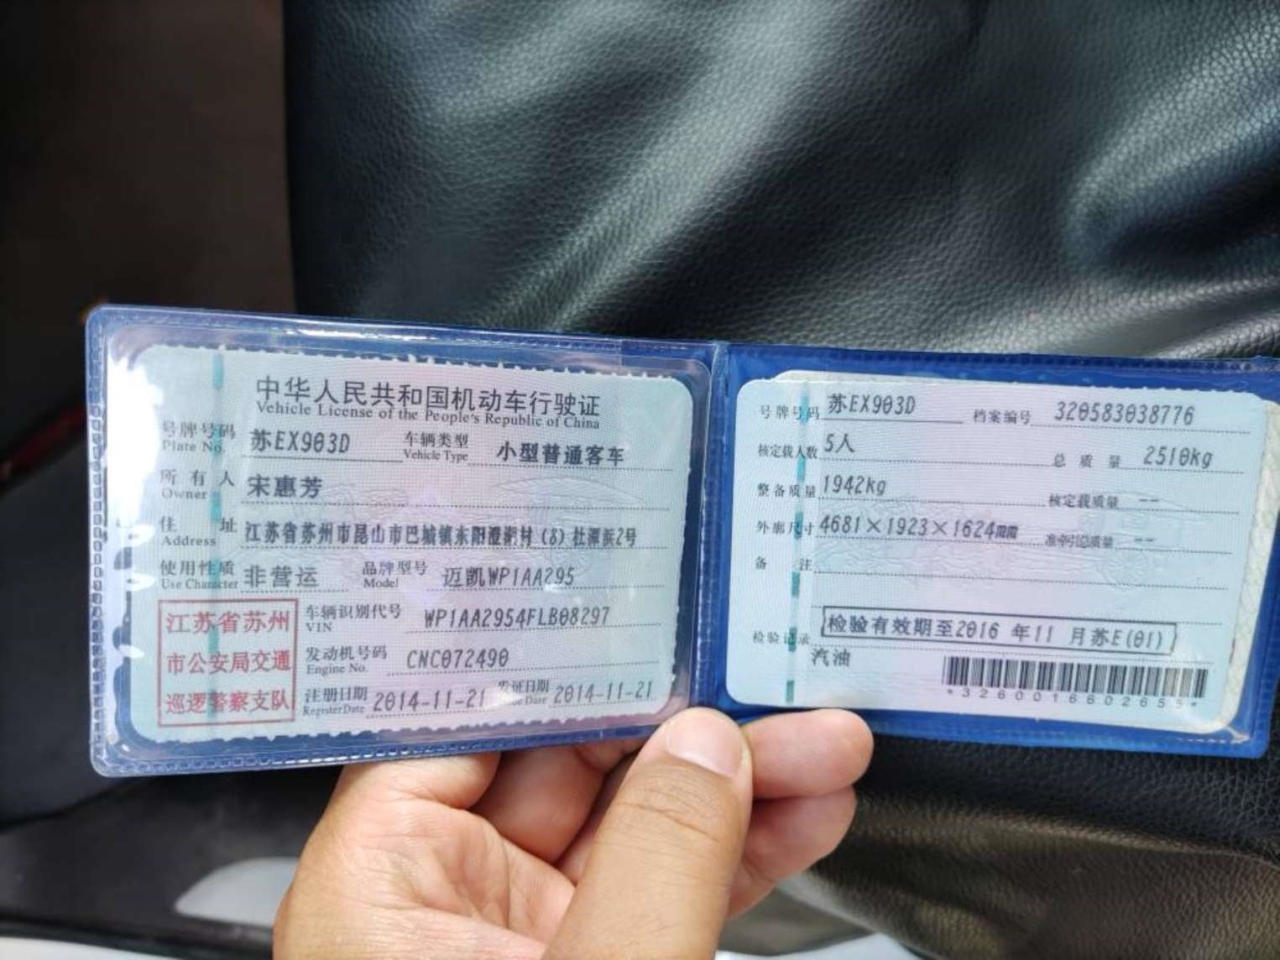 中华人民共和国机动车行驶证
Vehicle License of the People's Republic of China
号牌号码 苏EX903D 车辆类型 小型普通客车
Plate No. Vehicle Type
所有人 宋惠芳
Owner
住址 江苏省苏州市昆山市巴城镇东阳澄湖村(8)杜潭浜2号
Address
使用性质 非营运 品牌型号 迈凯WP1AA295
Use Character Model
江苏省苏州
市公安局交通
巡逻警察支队
车辆识别代号 WP1AA2954FLB08297
VIN
发动机号码 CNC072490
Engine No.
注册日期 2014-11-21 发证日期 2014-11-21
Register Date Issue Date
号牌号码 苏EX903D 档案编号 320583038776
核定载人数 5人 总质量 2510kg
整备质量 1942kg 核定载质量 --
外廓尺寸 4681×1923×1624 准牵引总质量 --
备注
检验记录 检验有效期至2016年11月苏E(01)
汽油
*3260016602655*